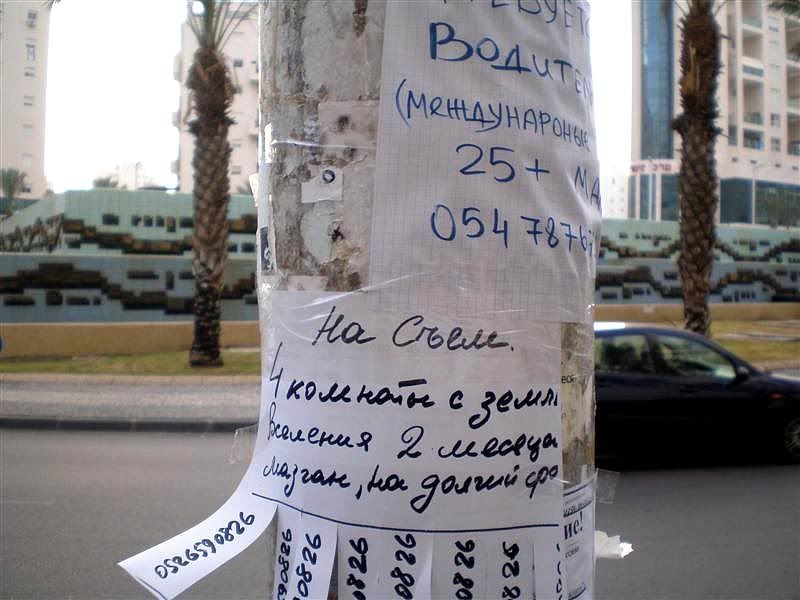 ТРЕБУЕТ
ВОДИТЕЛ
(МЕЖДУНАРОНЫЕ
25+ МА
054 7876
На Съем.
4 комнаты с земл
Вселения 2 месяца
Мазган, на долгий сро
0526590826
590826
0826
0826
0826
0826
0826
ие!